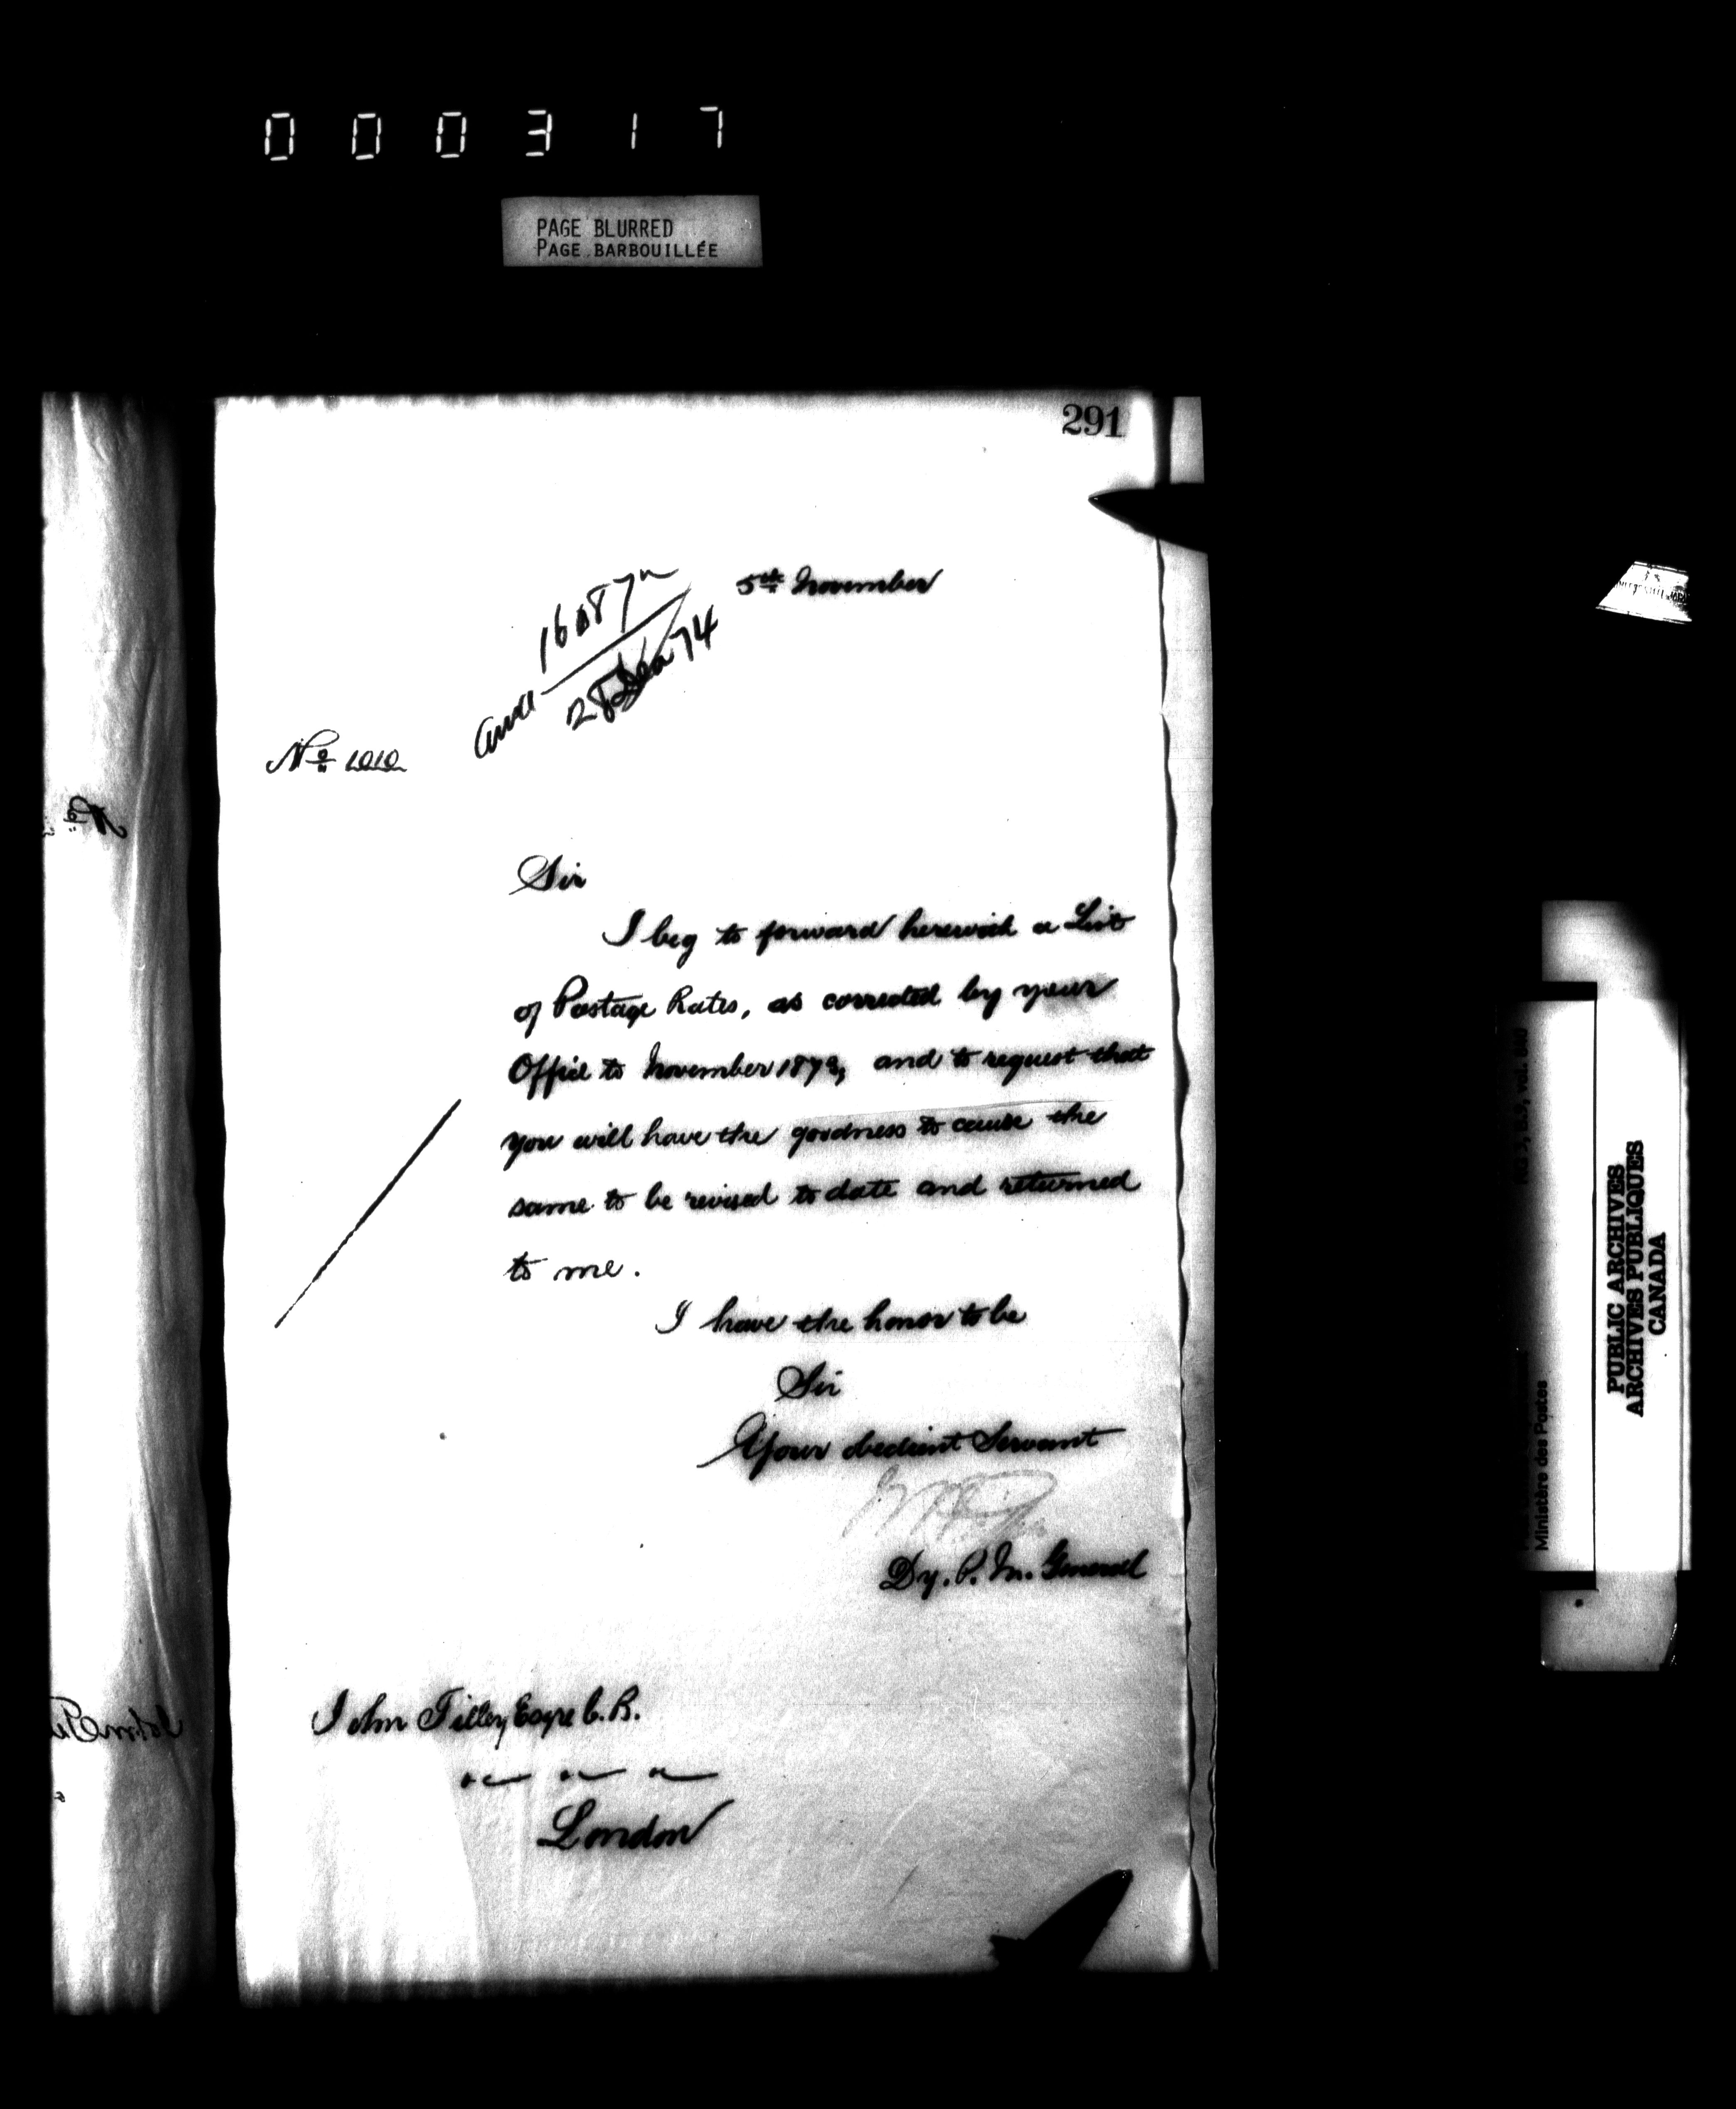 000317
PAGE BLURRED
PAGE BARBOUILLÉE
291
5th November
16087
28 Dec 74
No 1010
Sir
I beg to forward herewith a List
of Postage Rates, as corrected by your
Office to November 1873, and to request that
you will have the goodness to cause the
same to be revised to date and returned
to me.
I have the honor to be
Sir
Your obedient Servant
Dy. P. M. General
John Tilley Esqre C.B.
London
PUBLIC ARCHIVES
ARCHIVES PUBLIQUES
CANADA
Ministère des Postes